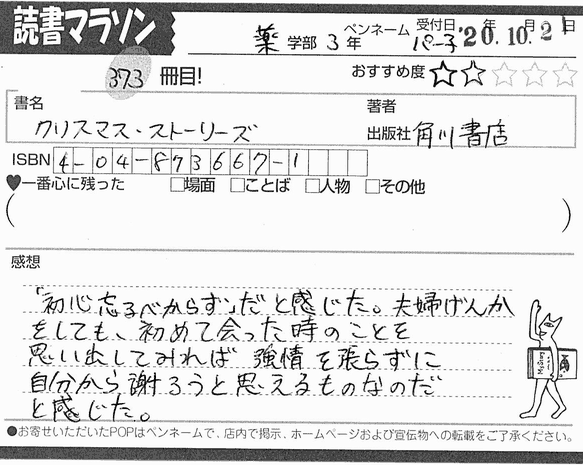 読書マラソン
薬 学部 3 年 ペンネーム パー子 受付日 '20年 10月 21日
373 冊目! おすすめ度 ☆☆☆☆☆
書名 著者
クリスマス・ストーリーズ 出版社 角川書店
ISBN 4-04-873667-1
♥一番心に残った □場面 □ことば □人物 □その他
( )
感想
「初心忘るべからず」だと感じた。夫婦げんか
をしても、初めて会った時のことを
思い出してみれば 強情を張らずに
自分から謝ろうと思えるものなのだ
と感じた。
●お寄せいただいたPOPはペンネームで、店内で掲示、ホームページおよび宣伝物への転載をご了承ください。